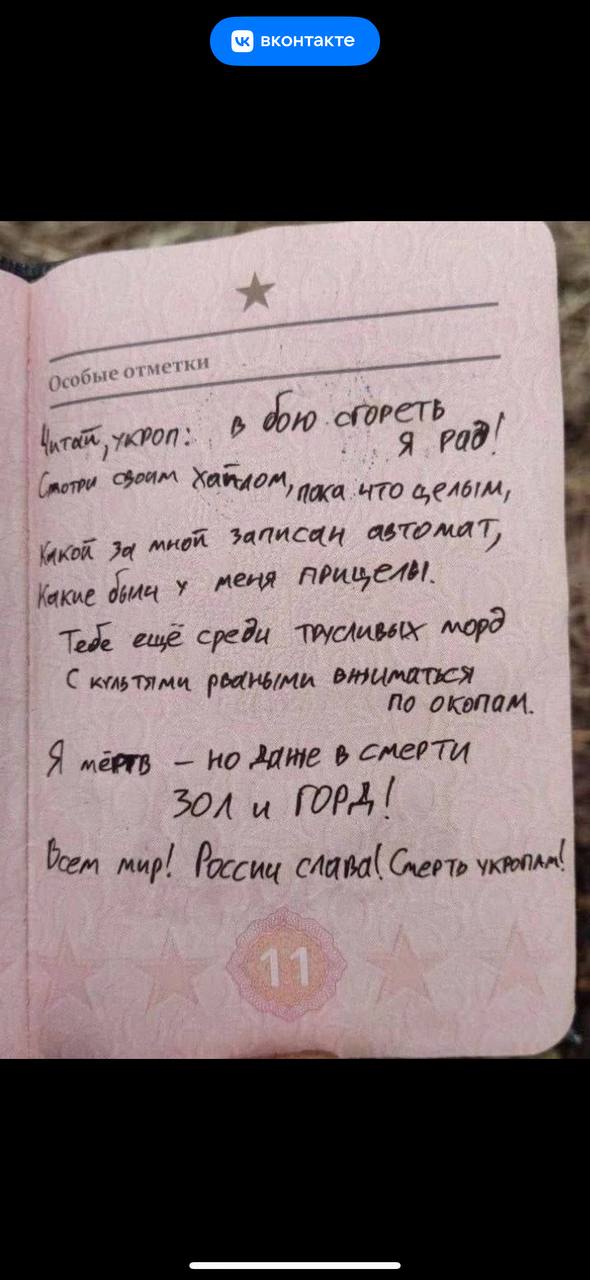 вконтакте
Особые отметки
Читай, укроп: в бою сгореть
я рад!
Смотри своим хайлом, пока что целым,
Какой за мной записан автомат,
Какие были у меня прицелы.
Тебе ещё среди трусливых морд
С культями рваными вжиматься
по окопам.
Я мёртв – но даже в смерти
ЗОЛ и ГОРД!
Всем мир! России слава! Смерть укропам!
11